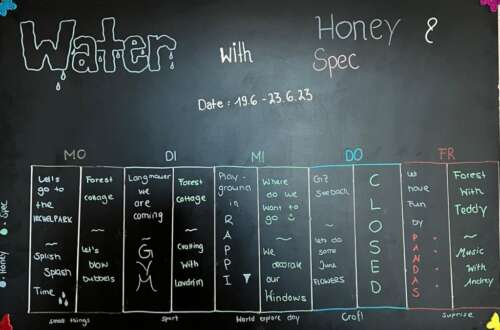 Water
With
Honey &
Spec
Date: 19.6 - 23.6.23
MO
DI
MI
DO
FR
Let's
go to
the
~
Splish
Splash
Time
Forest
cottage
~
Let's
blow
bubbels
Langmauer
we
are
coming
~
GYM
Forest
cottage
~
Crafting
With
Play-
ground
in
RAPPI
Where
do we
want to
go
~
We
decorate
our
Windows
GZ
Seebach
~
Let's do
some
June
FLOWERS
CLOSED
We
have
Fun
by
PANDAS
Forest
With
Teddy
~
Music
With
Andrey
Honey
Spec
small things
sport
World explore day
Craft
Suprise